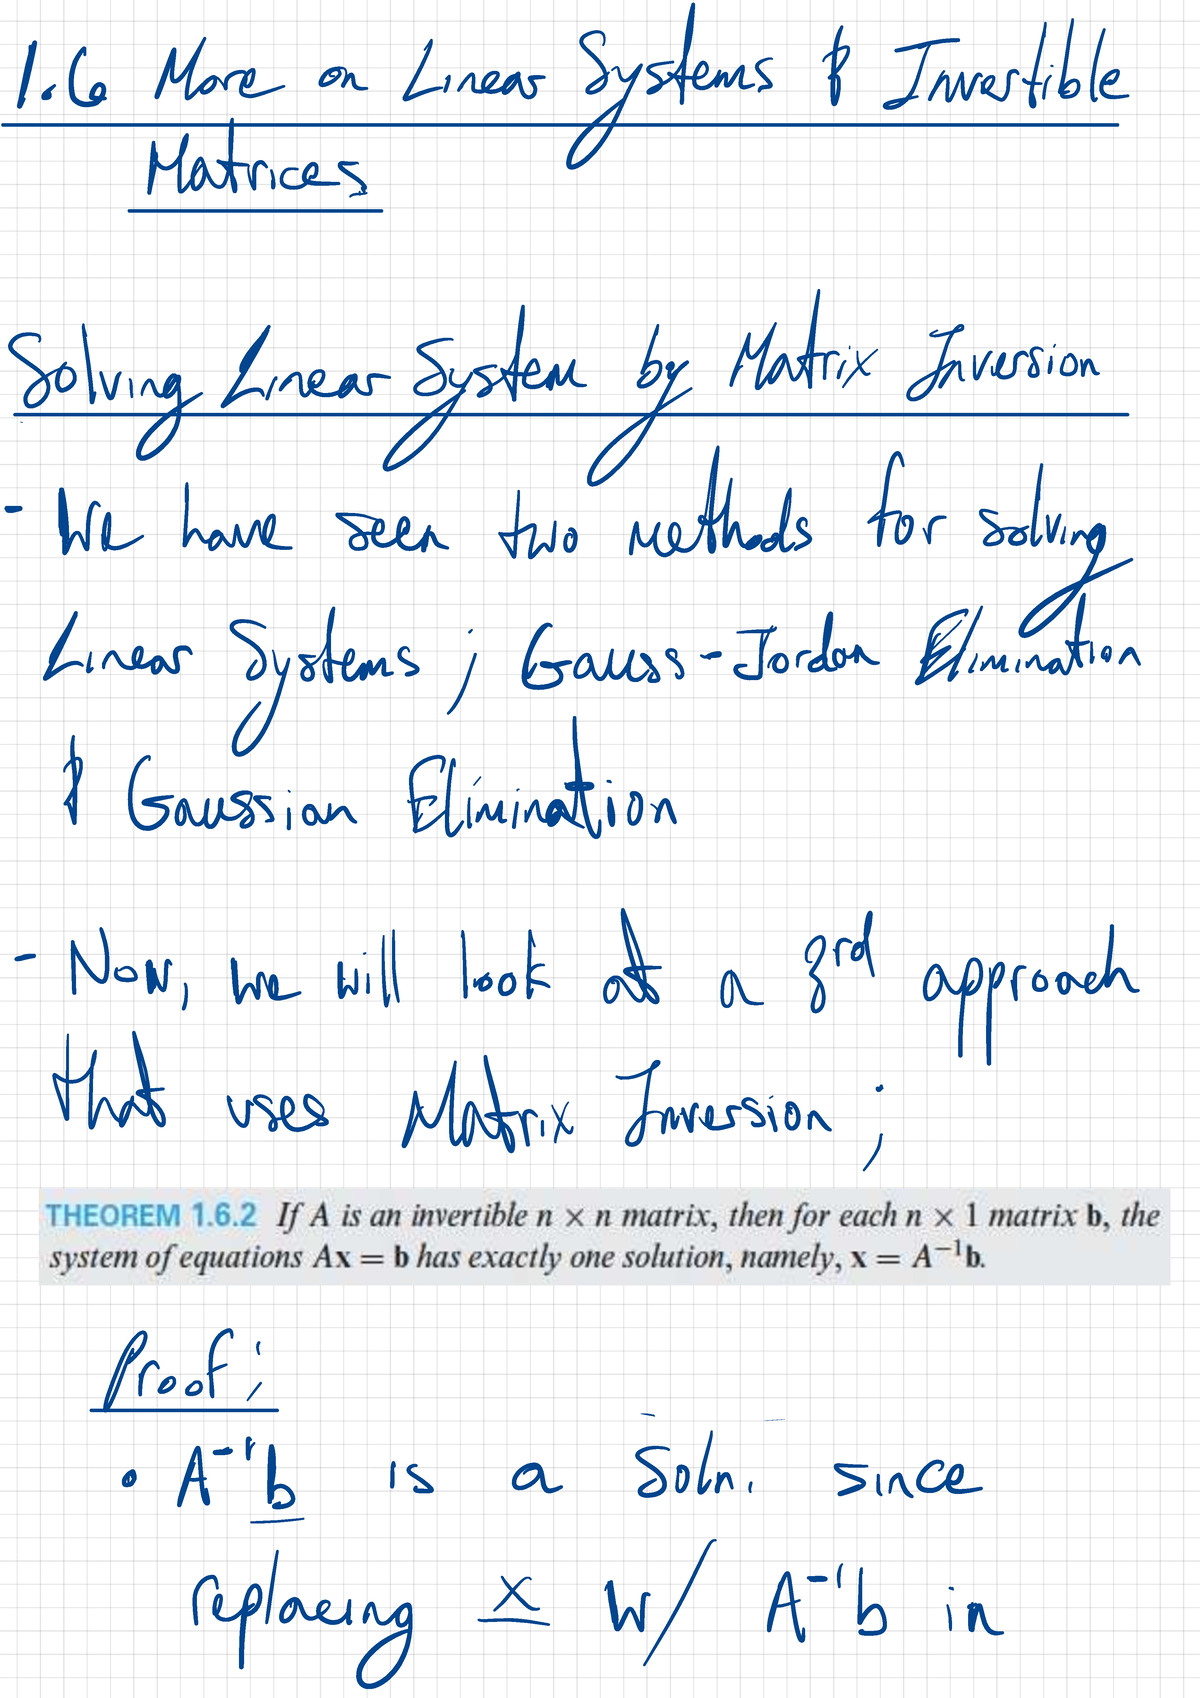 1.6 More on Linear Systems & Invertible
Matrices
Solving Linear System by Matrix Inversion
- We have seen two methods for solving
Linear Systems ; Gauss-Jordan Elimination
& Gaussian Elimination
- Now, we will look at a 3rd approach
that uses Matrix Inversion ;
THEOREM 1.6.2 If A is an invertible n × n matrix, then for each n × 1 matrix b, the
system of equations Ax = b has exactly one solution, namely, x = A⁻¹b.
Proof ;
• A⁻¹b is a Soln. since
replacing x w/ A⁻¹b in